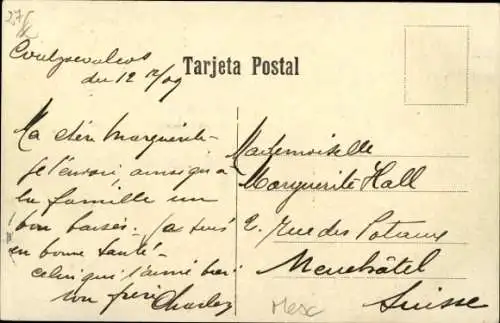 Tarjeta Postal
du 12 12/09
Ma chère Marguerite
je t'envoie ainsi qu'a
la famille un
bon baisés. Je suis
en bonne santé
celui qui t'aime bien
ton frère Charles
Mademoiselle
Marguerite Hall
2. Rue des Poteaux
Neuchâtel
Suisse
Mex